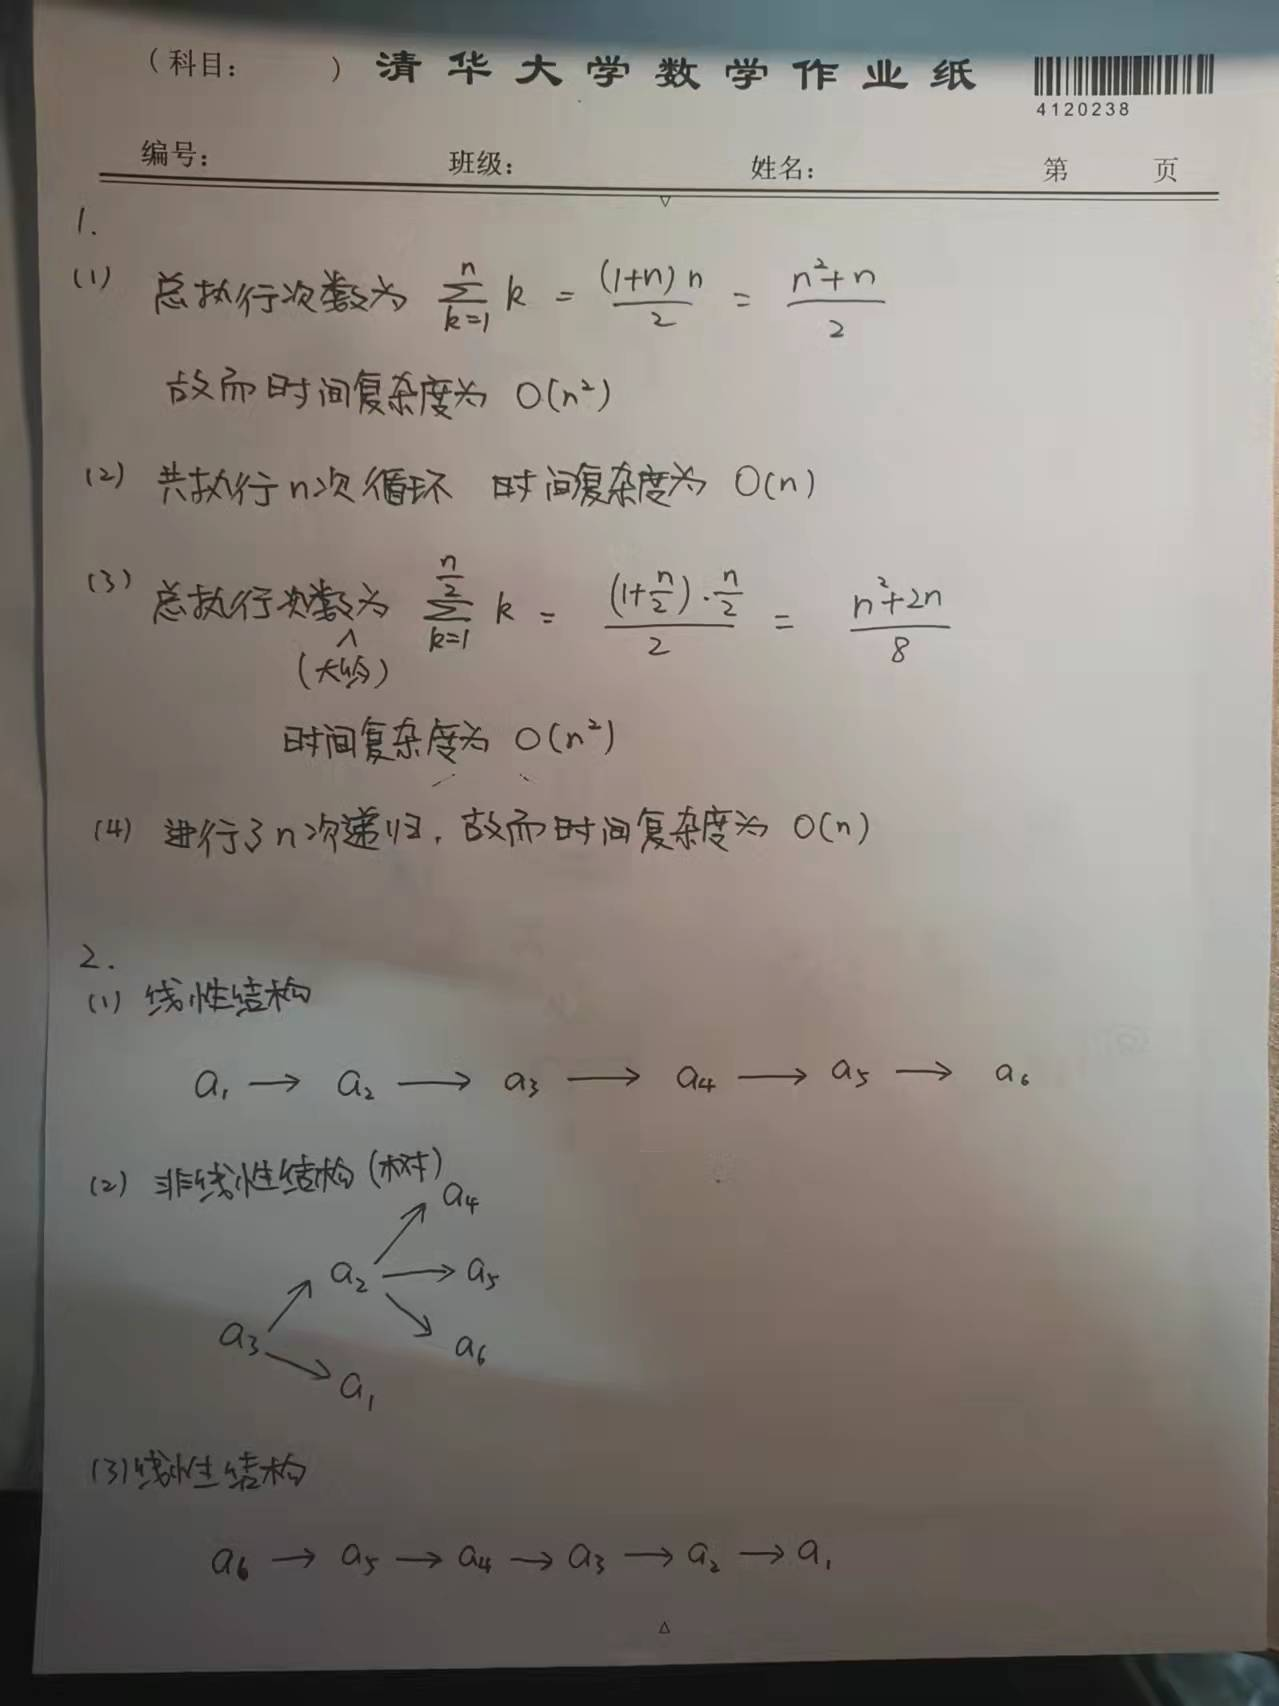 （科目： ）清华大学数学作业纸
4120238
编号： 班级： 姓名： 第 页
1.
(1) 总执行次数为 \sum_{k=1}^{n} k = \frac{(1+n)n}{2} = \frac{n^2+n}{2}
故而时间复杂度为 O(n²)
(2) 共执行n次循环 时间复杂度为 O(n)
(3) 总执行次数为 \sum_{k=1}^{\frac{n}{2}} k = \frac{(1+\frac{n}{2})·\frac{n}{2}}{2} = \frac{n^2+2n}{8}
(大约)
时间复杂度为 O(n²)
(4) 进行了n次递归，故而时间复杂度为 O(n)
2.
(1) 线性结构
a₁ → a₂ → a₃ → a₄ → a₅ → a₆
(2) 非线性结构 (树)
a₄
a₂ → a₅
a₃ a₆
a₁
(3) 线性结构
a₆ → a₅ → a₄ → a₃ → a₂ → a₁